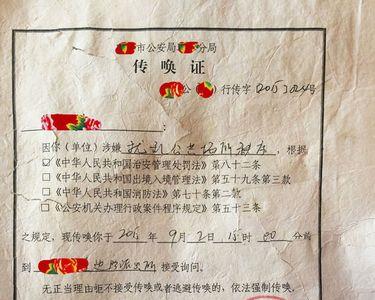 市公安局 分局
传唤证
公 行传字 2015 号
因你（单位）涉嫌 扰乱公共场所秩序，根据
□《中华人民共和国治安管理处罚法》第八十二条
□《中华人民共和国出境入境管理法》第五十九条第三款
□《中华人民共和国消防法》第七十条第二款
□《公安机关办理行政案件程序规定》第五十三条
之规定，现传唤你于 2015 年 9 月 2 日 15 时 00 分前
到 派出所 接受询问。
无正当理由拒不接受传唤或者逃避传唤的，依法强制传唤。